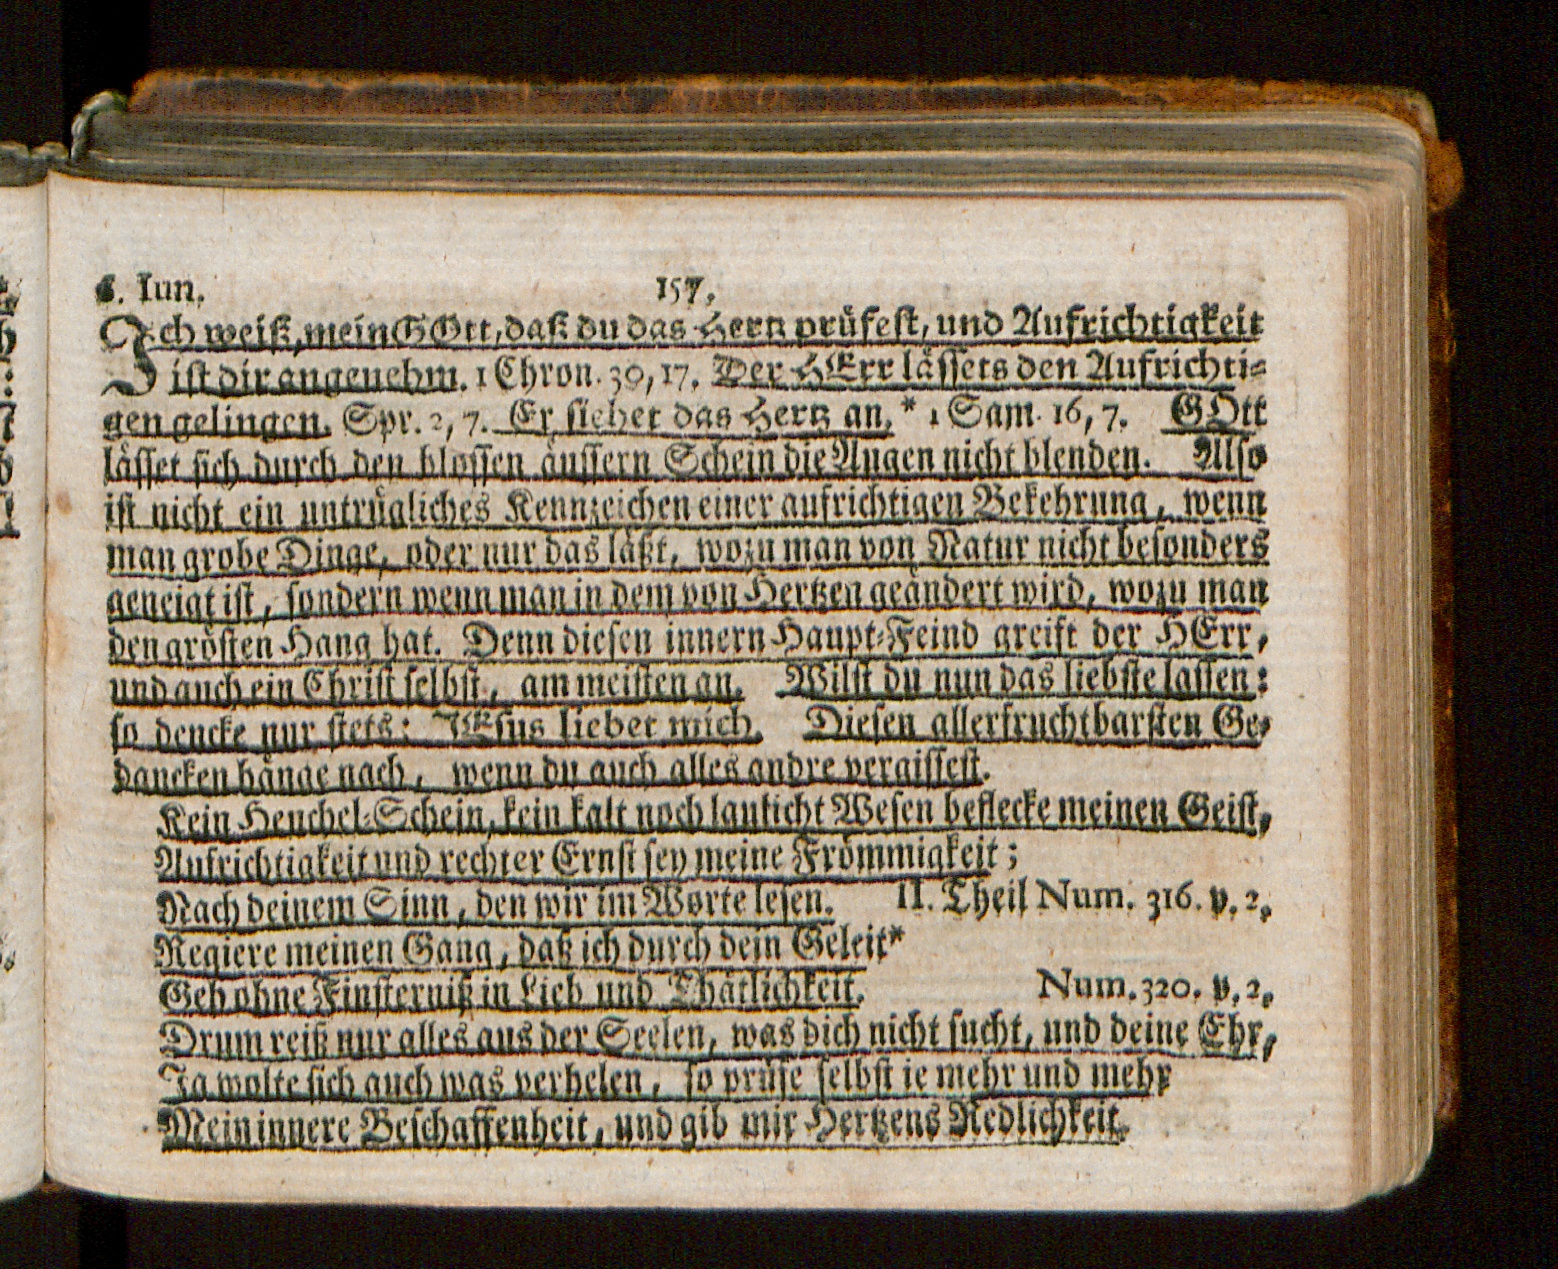 6. Iun. 157.
Ich weiß, mein GOtt, daß du das Hertz prüfest, und Aufrichtigkeit
ist dir angenehm. 1 Chron. 30, 17. Der HErr lässets den Aufrichti-
gen gelingen. Spr. 2, 7. Er siehet das Hertz an. * 1 Sam. 16, 7. GOtt
lässet sich durch den blossen äussern Schein die Augen nicht blenden. Also
ist nicht ein untrügliches Kennzeichen einer aufrichtigen Bekehrung, wenn
man grobe Dinge, oder nur das läßt, wozu man von Natur nicht besonders
geneigt ist, sondern wenn man in dem von Hertzen geändert wird, wozu man
den grösten Hang hat. Denn diesen innern Haupt-Feind greift der HErr,
und auch ein Christ selbst, am meisten an. Wilst du nun das liebste lassen:
so dencke nur stets: JEsus liebet mich. Diesen allerfruchtbarsten Ge-
dancken hänge nach, wenn du auch alles andre vergissest.
Kein Heuchel-Schein, kein kalt noch laulicht Wesen beflecke meinen Geist,
Aufrichtigkeit und rechter Ernst sey meine Frömmigkeit;
Nach deinem Sinn, den wir im Worte lesen. II. Theil Num. 316. v. 2.
Regiere meinen Gang, daß ich durch dein Geleit*
Geh ohne Finsterniß in Lieb und Thätlichkeit. Num. 320. v. 2.
Drum reiß nur alles aus der Seelen, was dich nicht sucht, und deine Ehr,
Ja wolte sich auch was verhelen, so prüfe selbst ie mehr und mehr
Mein innere Beschaffenheit, und gib mir Hertzens Redlichkeit.